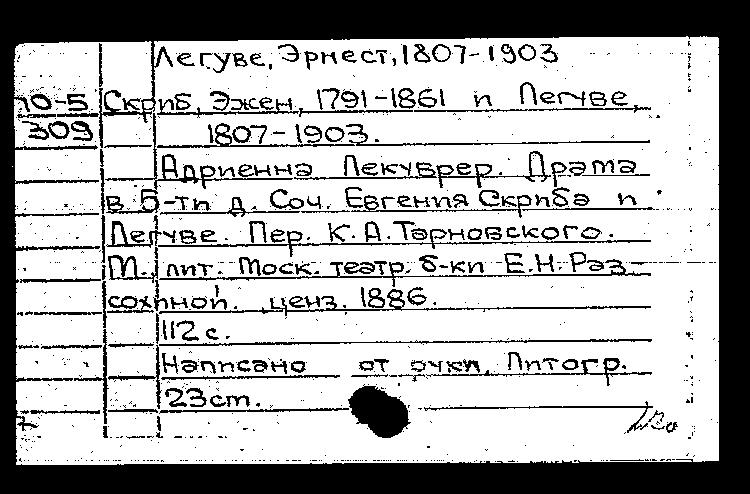 Легуве, Эрнест, 1807-1903
10-5 Скриб, Эжен, 1791-1861 и Легуве,
309 1807-1903.
Адриенна Лекуврер. Драма
в 5-ти д. Соч. Евгения Скриба и
Легуве. Пер. К.А. Тарновского.
М., лит. Моск. театр. б-ки Е.Н. Раз-
сохиной. ценз. 1886.
112 с.
Написано от руки. Литогр.
23 см.